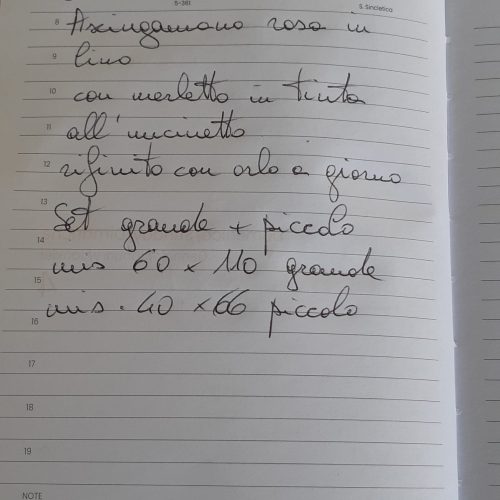 5-361 S. Sincletica
8 Asciugamano rosa in
9 lino
10 con merletto in tinta
11 all'uncinetto
12 rifinito con orlo a giorno
13
Set grande + piccolo
14
mis 60 x 110 grande
15
mis. 40 x 66 piccolo
16
17
18
19
NOTE